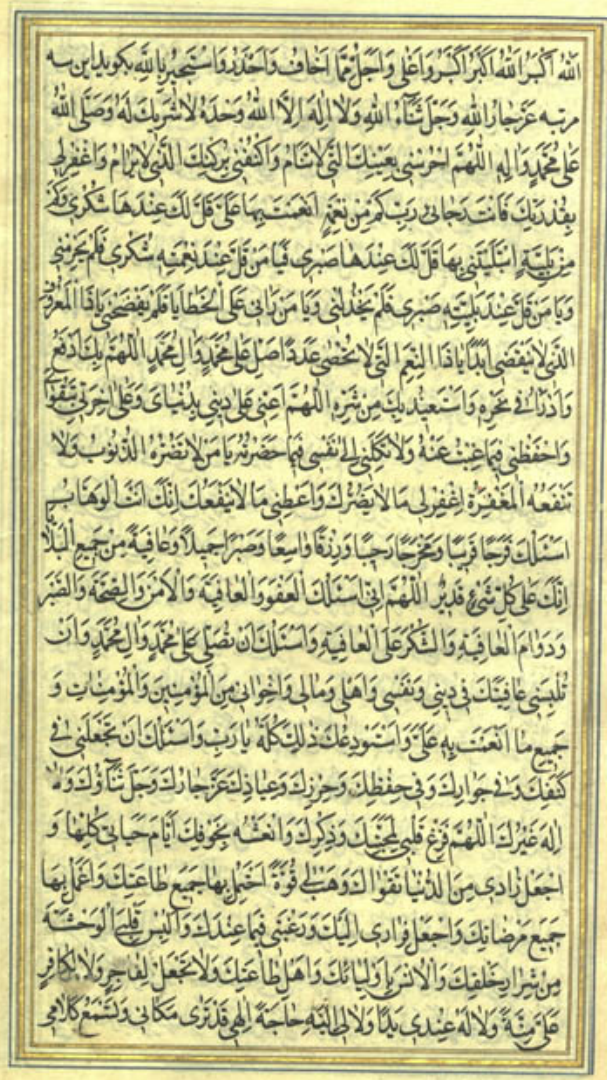 اَللّٰهُ اَكْبَرُ اَللّٰهُ اَكْبَرُ اَكْبَرُ وَاَعْلٰى وَاَجَلُّ مِمَّا اَخَافُ وَاَحْذَرُ وَاَسْتَجِيرُ بِاللّٰهِ بگوید این سه
مرتبه عَزَّ جَارُ اللّٰهِ وَجَلَّ ثَنَاءُ اللّٰهِ وَلَا اِلٰهَ اِلَّا اللّٰهُ وَحْدَهُ لَا شَرِيكَ لَهُ وَصَلَّى اللّٰهُ
عَلٰى مُحَمَّدٍ وَاٰلِهِ اَللّٰهُمَّ احْرُسْنِي بِعَيْنِكَ الَّتِي لَا تَنَامُ وَاكْنُفْنِي بِرُكْنِكَ الَّذِي لَا يُرَامُ وَاغْفِرْ لِي
بِقُدْرَتِكَ فَاَنْتَ رَجَائِي رَبِّ كَمْ مِنْ نِعْمَةٍ اَنْعَمْتَ بِهَا عَلَيَّ قَلَّ لَكَ عِنْدَهَا شُكْرِي وَكَمْ
مِنْ بَلِيَّةٍ ابْتَلَيْتَنِي بِهَا قَلَّ لَكَ عِنْدَهَا صَبْرِي فَيَا مَنْ قَلَّ عِنْدَ نِعْمَتِهِ شُكْرِي فَلَمْ يَحْرِمْنِي
وَيَا مَنْ قَلَّ عِنْدَ بَلِيَّتِهِ صَبْرِي فَلَمْ يَخْذُلْنِي وَيَا مَنْ رَاٰنِي عَلَى الْخَطَايَا فَلَمْ يَفْضَحْنِي يَا ذَا الْمَعْرُوفِ
الَّذِي لَا يَنْقَضِي اَبَدًا يَا ذَا النِّعَمِ الَّتِي لَا تُحْصٰى عَدَدًا صَلِّ عَلٰى مُحَمَّدٍ وَاٰلِ مُحَمَّدٍ اَللّٰهُمَّ بِكَ اَدْفَعُ
وَاَدْرَاُ فِي نَحْرِهِ وَاَسْتَعِيذُ بِكَ مِنْ شَرِّهِ اَللّٰهُمَّ اَعِنِّي عَلٰى دِينِي بِدُنْيَايَ وَعَلٰى اٰخِرَتِي بِتَقْوَايَ
وَاحْفَظْنِي فِيمَا غِبْتُ عَنْهُ وَلَا تَكِلْنِي اِلٰى نَفْسِي فِيمَا حَضَرْتُهُ يَا مَنْ لَا تَضُرُّهُ الذُّنُوبُ وَلَا
تَنْفَعُهُ الْمَغْفِرَةُ اِغْفِرْ لِي مَا لَا يَضُرُّكَ وَاَعْطِنِي مَا لَا يَنْفَعُكَ اِنَّكَ اَنْتَ الْوَهَّابُ
اَسْئَلُكَ فَرَجًا قَرِيبًا وَمَخْرَجًا رَحِيبًا وَرِزْقًا وَاسِعًا وَصَبْرًا جَمِيلًا وَعَافِيَةً مِنْ جَمِيعِ الْبَلَاءِ
اِنَّكَ عَلٰى كُلِّ شَيْءٍ قَدِيرٌ اَللّٰهُمَّ اِنِّي اَسْئَلُكَ الْعَفْوَ وَالْعَافِيَةَ وَالْاَمْنَ وَالصِّحَّةَ وَالصَّبْرَ
وَدَوَامَ الْعَافِيَةِ وَالشُّكْرَ عَلَى الْعَافِيَةِ وَاَسْئَلُكَ اَنْ تُصَلِّيَ عَلٰى مُحَمَّدٍ وَاٰلِ مُحَمَّدٍ وَاَنْ
تُلْبِسَنِي عَافِيَتَكَ فِي دِينِي وَنَفْسِي وَاَهْلِي وَمَالِي وَاِخْوَانِي مِنَ الْمُؤْمِنِينَ وَالْمُؤْمِنَاتِ وَ
جَمِيعِ مَا اَنْعَمْتَ بِهِ عَلَيَّ وَاَسْتَوْدِعُكَ ذٰلِكَ كُلَّهُ يَا رَبِّ وَاَسْئَلُكَ اَنْ تَجْعَلَنِي فِي
كَنَفِكَ وَفِي جِوَارِكَ وَفِي حِفْظِكَ وَحِرْزِكَ وَعِيَاذِكَ عَزَّ جَارُكَ وَجَلَّ ثَنَاؤُكَ وَلَا
اِلٰهَ غَيْرُكَ اَللّٰهُمَّ فَرِّغْ قَلْبِي لِمَحَبَّتِكَ وَذِكْرِكَ وَانْعَشْهُ بِخَوْفِكَ اَيَّامَ حَيَاتِي كُلِّهَا وَ
اجْعَلْ زَادِي مِنَ الدُّنْيَا تَقْوَاكَ وَهَبْ لِي قُوَّةً اَحْتَمِلُ بِهَا جَمِيعَ طَاعَتِكَ وَاَعْمَلُ بِهَا
جَمِيعَ مَرْضَاتِكَ وَاجْعَلْ فِرَارِي اِلَيْكَ وَرَغْبَتِي فِيمَا عِنْدَكَ وَاَلْبِسْ قَلْبِي الْوَحْشَةَ
مِنْ شِرَارِ خَلْقِكَ وَالْاُنْسَ بِاَوْلِيَائِكَ وَاَهْلِ طَاعَتِكَ وَلَا تَجْعَلْ لِفَاجِرٍ وَلَا لِكَافِرٍ
عَلَيَّ مِنَّةً وَلَا لَهُ عِنْدِي يَدًا وَلَا لِي اِلَيْهِ حَاجَةً اِلٰهِي قَدْ تَرٰى مَكَانِي وَتَسْمَعُ كَلَامِي